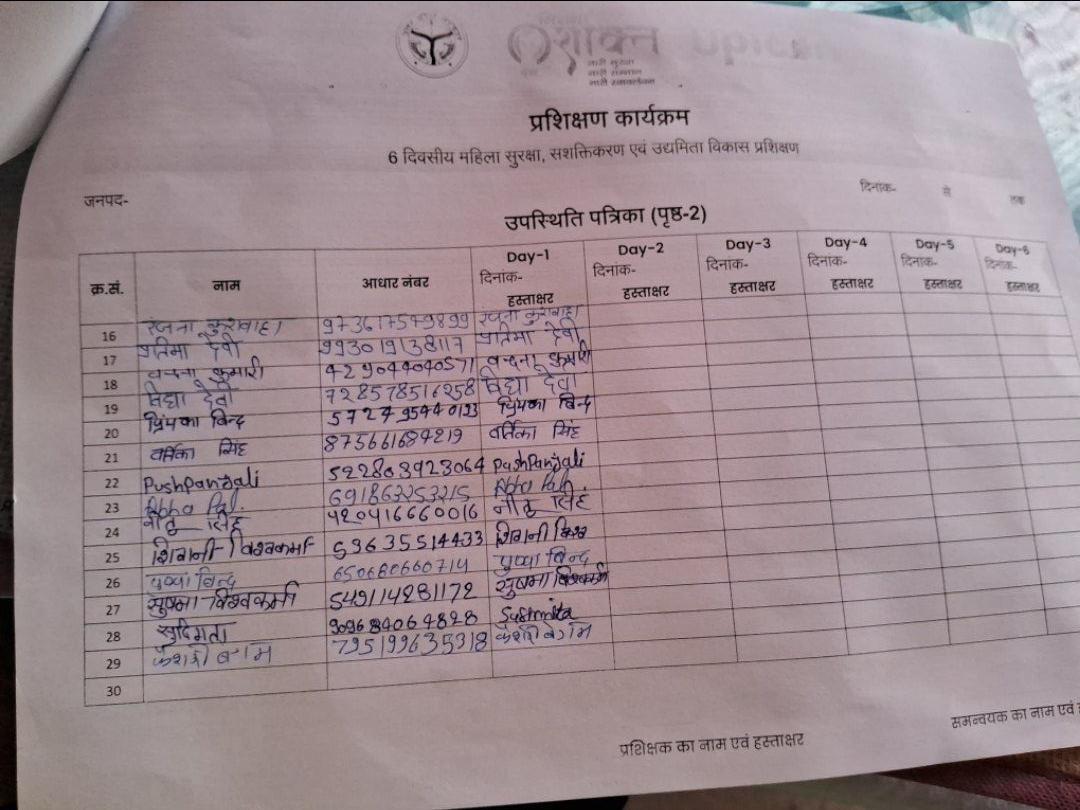 शक्ति
नारी सुरक्षा
नारी सम्मान
नारी स्वावलंबन
प्रशिक्षण कार्यक्रम
6 दिवसीय महिला सुरक्षा, सशक्तिकरण एवं उद्यमिता विकास प्रशिक्षण
जनपद- दिनांक- से तक
उपस्थिति पत्रिका (पृष्ठ-2)
क्र.सं. नाम आधार नंबर Day-1 Day-2 Day-3 Day-4 Day-5 Day-6
दिनांक- दिनांक- दिनांक- दिनांक- दिनांक- दिनांक-
हस्ताक्षर हस्ताक्षर हस्ताक्षर हस्ताक्षर हस्ताक्षर हस्ताक्षर
16 रंजना कुशवाहा 973617579899 रंजना कुशवाहा
17 प्रतिमा देवी 993019138117 प्रतिमा देवी
18 वन्दना कुमारी 429044040571 वन्दना कुमारी
19 विद्या देवी 728578516258 विद्या देवी
20 प्रियंका बिन्द प्रियंका बिन्द
21 वर्तिका सिंह 875661684219 वर्तिका सिंह
22 Pushpanjali 522803923064 Pushpanjali
23 Abha Pal. Abha Pal
24 नीतू सिंह 420416660016 नीतू सिंह
25 शिवानी विश्वकर्मा 59635514433 शिवानी विश्व
26 पुष्पा बिन्द 650680660714 पुष्पा बिन्द
27 सुषमा विश्वकर्मा 549114281172 सुषमा विश्वकर्मा
28 909684064828 Sushmita
29 795199635318
30
प्रशिक्षक का नाम एवं हस्ताक्षर
समन्वयक का नाम एवं